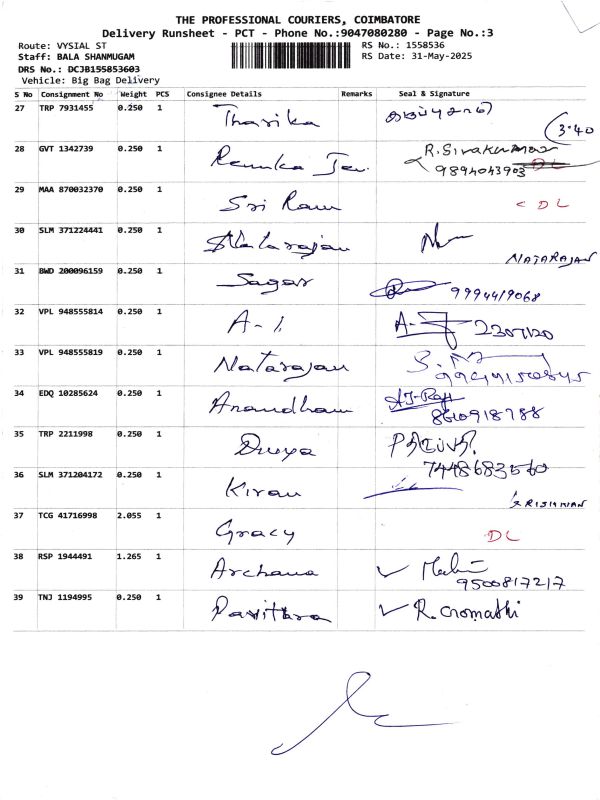 THE PROFESSIONAL COURIERS, COIMBATORE
Delivery Runsheet - PCT - Phone No.:9047080280 - Page No.:3
Route: VYSIAL ST RS No.: 1558536
Staff: BALA SHANMUGAM RS Date: 31-May-2025
DRS No.: DCJB155853603
Vehicle: Big Bag Delivery
S No Consignment No Weight PCS Consignee Details Remarks Seal & Signature
27 TRP 7931455 0.250 1 Tharika
3.40
28 GVT 1342739 0.250 1 Renuka R. Sivakumar
9894043903 DL
29 MAA 870032370 0.250 1 Sri Ram DL
30 SLM 371224441 0.250 1 Natarajan
NATARAJAN
31 BWD 200096159 0.250 1 Sagar 9994419068
32 VPL 948555814 0.250 1 A-1
33 VPL 948555819 0.250 1 Natarajan
34 EDQ 10285624 0.250 1 Anandham
8610918788
35 TRP 2211998 0.250 1 Divya
7448683560
36 SLM 371204172 0.250 1 Kiran
37 TCG 41716998 2.055 1 Gracy DL
38 RSP 1944491 1.265 1 Archana
9500817217
39 TNJ 1194995 0.250 1 Pavithra R. Gomathi